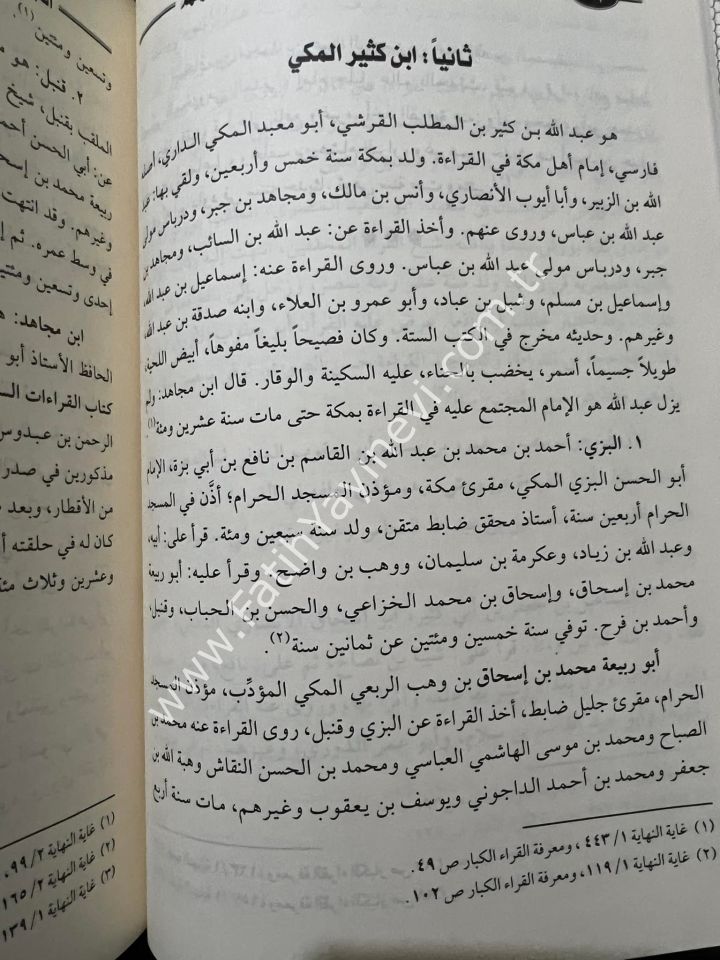 ثانياً: ابن كثير المكي
هو عبد الله بن كثير بن المطلب القرشي، أبو معبد المكي الداري، أصله
فارسي، إمام أهل مكة في القراءة. ولد بمكة سنة خمس وأربعين، ولقي بها: عبد
الله بن الزبير، وأبا أيوب الأنصاري، وأنس بن مالك، ومجاهد بن جبر، ودرباس مولى
عبد الله بن عباس، وروى عنهم. وأخذ القراءة عن: عبد الله بن السائب، ومجاهد بن
جبر، ودرباس مولى عبد الله بن عباس. وروى القراءة عنه: إسماعيل بن عبد الله،
وإسماعيل بن مسلم، وشبل بن عباد، وأبو عمرو بن العلاء، وابنه صدقة بن عبد الله،
وغيرهم. وحديثه مخرج في الكتب الستة. وكان فصيحاً بليغاً مفوهاً، أبيض اللحية،
طويلاً جسيماً، أسمر، يخضب بالحناء، عليه السكينة والوقار. قال ابن مجاهد: ولم
يزل عبد الله هو الإمام المجتمع عليه في القراءة بمكة حتى مات سنة عشرين ومئة(١).
١. البزي: أحمد بن محمد بن عبد الله بن القاسم بن نافع بن أبي بزة، الإمام
أبو الحسن البزي المكي، مقرئ مكة، ومؤذن المسجد الحرام؛ أذَّن في المسجد
الحرام أربعين سنة، أستاذ محقق ضابط متقن، ولد سنة سبعين ومئة. قرأ على: أبيه،
وعبد الله بن زياد، وعكرمة بن سليمان، ووهب بن واضح. وقرأ عليه: أبو ربيعة
محمد بن إسحاق، وإسحاق بن محمد الخزاعي، والحسن بن الحباب، وقنبل،
وأحمد بن فرح. توفي سنة خمسين ومئتين عن ثمانين سنة(٢).
أبو ربيعة محمد بن إسحاق بن وهب الربعي المكي المؤدِّب، مؤذن المسجد
الحرام، مقرئ جليل ضابط، أخذ القراءة عن البزي وقنبل، روى القراءة عنه محمد بن
الصباح ومحمد بن موسى الهاشمي العباسي ومحمد بن الحسن النقاش وهبة الله بن
جعفر ومحمد بن أحمد الداجوني ويوسف بن يعقوب وغيرهم، مات سنة أربع
(١) غاية النهاية ١/ ٤٤٣، ومعرفة القراء الكبار ص ٤٩.
(٢) غاية النهاية ١/ ١١٩، ومعرفة القراء الكبار ص ١٠٢.
وتسعين ومئتين(١).
٢. قنبل: هو
الملقب بقنبل، شيخ
عن: أبي الحسن أحمد
ربيعة محمد بن إسحا
وغيرهم. وقد انتهت
في وسط عمره. ثم إ
إحدى وتسعين ومئتين
ابن مجاهد: ه
الحافظ الأستاذ أبو
كتاب القراءات الس
الرحمن بن عبدوس
مذكورين في صدر
من الأقطار، وبعد
كان له في حلقته أ
وعشرين وثلاث مئة
(١) غاية النهاية ٢/ ٩٩،
(٢) غاية النهاية ٢/ ١٦٥
(٣) غاية النهاية ١/ ١٣٩
www.FatihYayinevi.com.tr